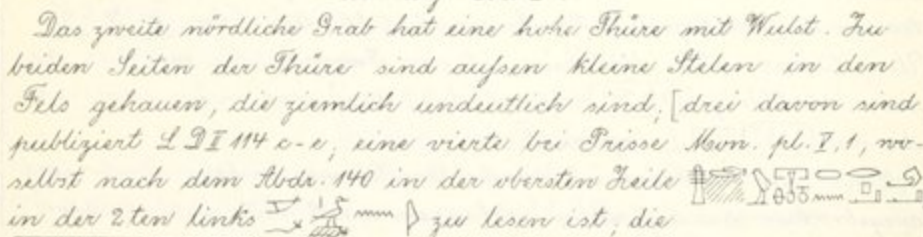 Das zweite nördliche Grab hat eine hohe Thüre mit Wulst. Zu
beiden Seiten der Thüre sind aufsen kleine Stelen in den
Fels gehauen, die ziemlich undeutlich sind; [drei davon sind
publiziert L D II 114 c-e; eine vierte bei Prisse Mon. pl. V, 1, wo-
selbst nach dem Abdr. 140 in der obersten Zeile
in der 2ten links zu lesen ist, die